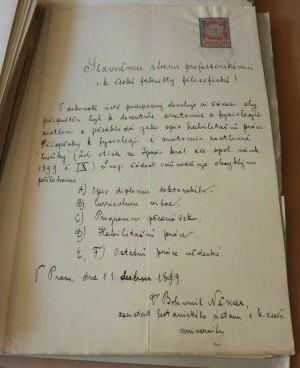 Slavnému sboru professorskému
c.k. české fakulty filosofické!
V dokonalé úctě podepsaný dovoluje si žádati, aby
připuštěn byl k docentuře anatomie a fysiologie
rostlin a předkládá jako spis habilitační práci
Příspěvky k fysiologii a anatomii rostlinné
buňky (Zvl. otisk ze Zpráv král. čes. spol. nauk
1899 č. IX)
přílohami
A) Opis diplomu doktorského.
B) Curriculum vitae.
C) Programm přednášek.
D) Habilitační práce.
E, F) Ostatní práce vědecké
V Praze, dne 11. dubna 1899.
Dr Bohumil Němec,
assistent botanického ústavu c.k. české
university.